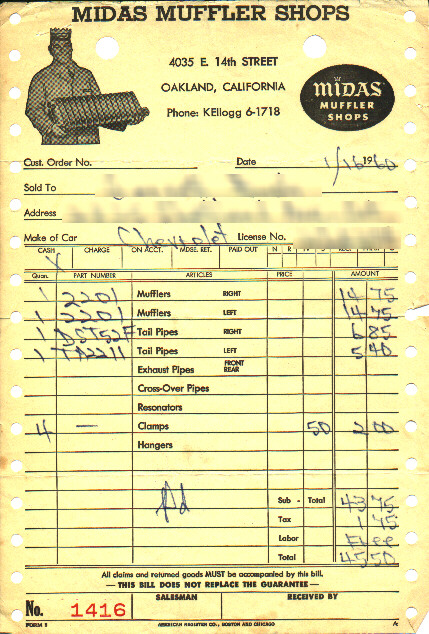 MIDAS MUFFLER SHOPS
4035 E. 14th STREET
OAKLAND, CALIFORNIA
Phone: KEllogg 6-1718
MIDAS
MUFFLER
SHOPS
Cust. Order No. Date 1/16 1960
Sold To
Address
Make of Car Chevrolet License No.
CASH CHARGE ON ACCT. MDSE. RET. PAID OUT
Quan. PART NUMBER ARTICLES PRICE AMOUNT
1 2201 Mufflers RIGHT 14 75
1 2201 Mufflers LEFT 14 75
1 DST52F Tail Pipes RIGHT 6 85
1 TA2211 Tail Pipes LEFT 5 40
Exhaust Pipes FRONT REAR
Cross-Over Pipes
Resonators
4 — Clamps 50 2 00
Hangers
Pd
Sub - Total 43 75
Tax 1 75
Labor Free
Total 45 50
All claims and returned goods MUST be accompanied by this bill.
— THIS BILL DOES NOT REPLACE THE GUARANTEE —
No. 1416 SALESMAN RECEIVED BY
AMERICAN REGISTER CO., BOSTON AND CHICAGO